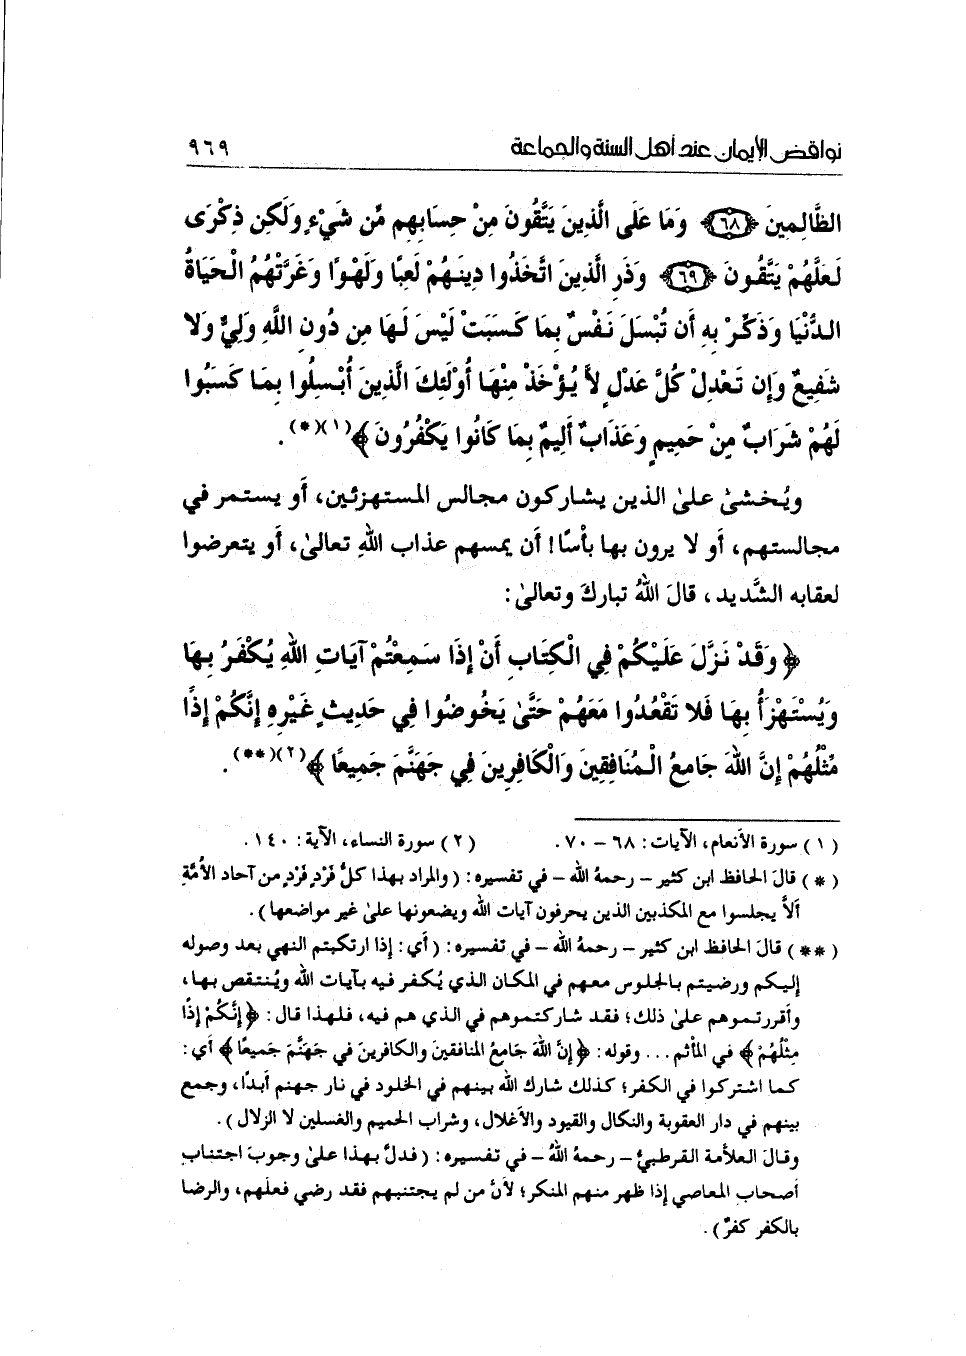 نواقض الإيمان عند أهل السنة والجماعة ٩٦٩
الظَّالِمِينَ ﴿٦٨﴾ وَمَا عَلَى الَّذِينَ يَتَّقُونَ مِنْ حِسَابِهِم مِّن شَيْءٍ وَلَكِن ذِكْرَى
لَعَلَّهُمْ يَتَّقُونَ ﴿٦٩﴾ وَذَرِ الَّذِينَ اتَّخَذُوا دِينَهُمْ لَعِبًا وَلَهْوًا وَغَرَّتْهُمُ الْحَيَاةُ
الدُّنْيَا وَذَكِّرْ بِهِ أَن تُبْسَلَ نَفْسٌ بِمَا كَسَبَتْ لَيْسَ لَهَا مِن دُونِ اللَّهِ وَلِيٌّ وَلَا
شَفِيعٌ وَإِن تَعْدِلْ كُلَّ عَدْلٍ لَّا يُؤْخَذْ مِنْهَا أُوْلَئِكَ الَّذِينَ أُبْسِلُوا بِمَا كَسَبُوا
لَهُمْ شَرَابٌ مِنْ حَمِيمٍ وَعَذَابٌ أَلِيمٌ بِمَا كَانُوا يَكْفُرُونَ﴾(١)(*).
ويُخشىٰ علىٰ الذين يشاركون مجالس المستهزئين، أو يستمر في
مجالستهم، أو لا يرون بها بأسًا! أن يمسهم عذاب اللهِ تعالىٰ، أو يتعرضوا
لعقابه الشَّديد، قالَ اللهُ تباركَ وتعالىٰ:
﴿وَقَدْ نَزَّلَ عَلَيْكُمْ فِي الْكِتَابِ أَنْ إِذَا سَمِعْتُمْ آيَاتِ اللهِ يُكْفَرُ بِهَا
وَيُسْتَهْزَأُ بِهَا فَلا تَقْعُدُوا مَعَهُمْ حَتَّىٰ يَخُوضُوا فِي حَدِيثٍ غَيْرِهِ إِنَّكُمْ إِذًا
مِّثْلُهُمْ إِنَّ اللهَ جَامِعُ الْمُنَافِقِينَ وَالْكَافِرِينَ فِي جَهَنَّمَ جَمِيعًا﴾(٢)(**).
(١) سورة الأنعام، الآيات: ٦٨ – ٧٠. (٢) سورة النساء، الآية: ١٤٠.
(*) قالَ الحافظ ابن كثير – رحمهُ الله – في تفسيره: (والمراد بهذا كلُّ فَرْدٍ فَرْدٍ من آحاد الأُمَّةِ
ألاَّ يجلسوا مع المكذبين الذين يحرفون آيات الله ويضعونها علىٰ غير مواضعها).
(**) قالَ الحافظ ابن كثير – رحمهُ الله – في تفسيره: (أي: إذا ارتكبتم النهي بعد وصوله
إليكم ورضيتم بالجلوس معهم في المكان الذي يُكفر فيه بآيات الله ويُنتقص بها،
وأقررتموهم علىٰ ذلك؛ فقد شاركتموهم في الذي هم فيه، فلهذا قال: ﴿إِنَّكُمْ إِذًا
مِثْلُهُمْ﴾ في المأثم... وقوله: ﴿إِنَّ اللهَ جَامِعُ المنافقينَ والكافرينَ في جَهَنَّمَ جَمِيعًا﴾ أي:
كما اشتركوا في الكفر؛ كذلك شارك الله بينهم في الخلود في نار جهنم أبداً، وجمع
بينهم في دار العقوبة والنكال والقيود والأغلال، وشراب الحميم والغسلين لا الزلال).
وقالَ العلاَّمة القرطبيُّ – رحمهُ اللهُ – في تفسيره: (فدلَّ بهذا علىٰ وجوبَ اجتنابِ
أصحاب المعاصي إذا ظهر منهم المنكر؛ لأنَّ من لم يجتنبهم فقد رضي فعلَهم، والرضا
بالكفر كفرٌ).